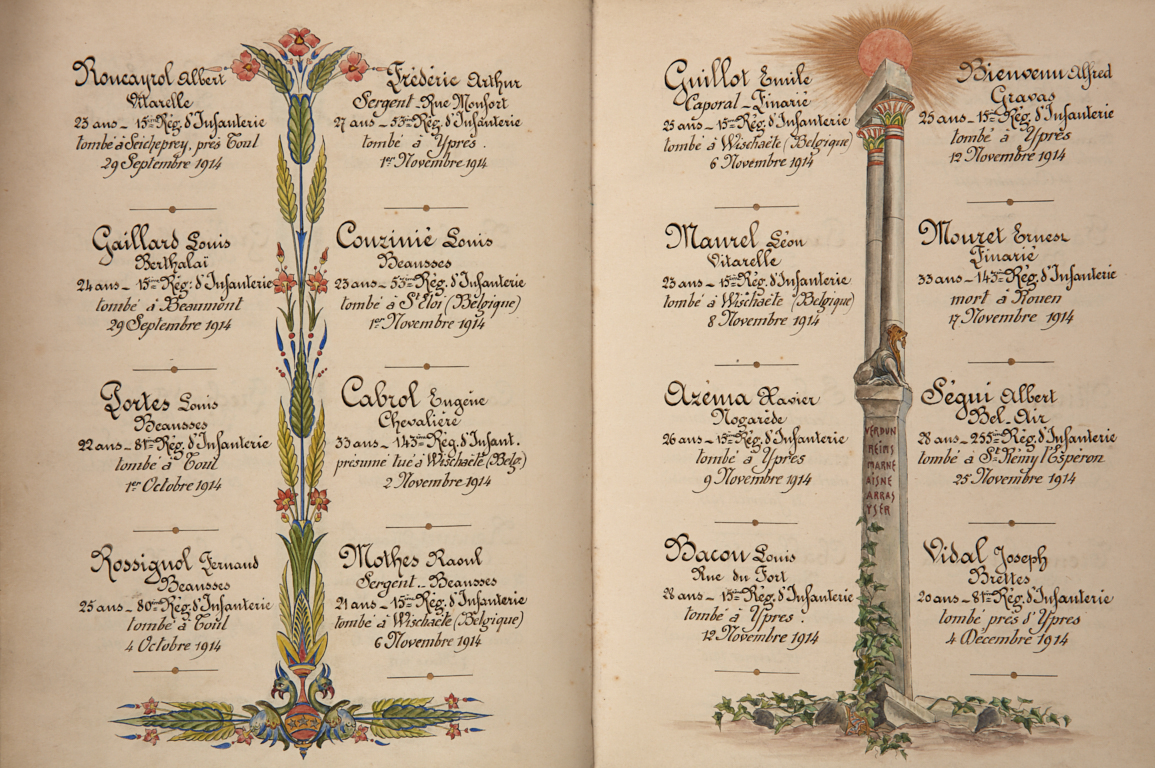 Roucayrol Albert
Vitarelle
23 ans - 15ème Rég. d'Infanterie
tombé à Seicheprey, près Toul
29 Septembre 1914
Gaillard Louis
Berthalaï
24 ans - 15ème Rég. d'Infanterie
tombé à Beaumont
29 Septembre 1914
Portes Louis
Beausses
22 ans - 81ème Rég. d'Infanterie
tombé à Toul
1er Octobre 1914
Rossignol Fernand
Beausses
25 ans - 80ème Rég. d'Infanterie
tombé à Toul
4 Octobre 1914
Frédéric Arthur
Sergent - Rue Monfort
27 ans - 53ème Rég. d'Infanterie
tombé à Ypres.
1er Novembre 1914
Couzinié Louis
Beausses
23 ans - 53ème Rég. d'Infanterie
tombé à St Eloi (Belgique)
1er Novembre 1914
Cabrol Eugène
Chevalière
33 ans - 143ème Rég. d'Infant.
présumé tué à Wischaëte (Belg.)
2 Novembre 1914
Mothes Raoul
Sergent - Beausses
21 ans - 15ème Rég. d'Infanterie
tombé à Wischaëte (Belgique)
6 Novembre 1914
Guillot Emile
Caporal - Finarié
25 ans - 15ème Rég. d'Infanterie
tombé à Wischaëte (Belgique)
6 Novembre 1914
Maurel Léon
Vitarelle
23 ans - 15ème Rég. d'Infanterie
tombé à Wischaëte (Belgique)
8 Novembre 1914
Azéma Xavier
Nogarède
26 ans - 15ème Rég. d'Infanterie
tombé à Ypres
9 Novembre 1914
Bacou Louis
Rue du Fort
28 ans - 15ème Rég. d'Infanterie
tombé à Ypres.
12 Novembre 1914
VERDUN
REIMS
MARNE
AISNE
ARRAS
YSER
Bienvenu Alfred
Gravas
25 ans - 15ème Rég. d'Infanterie
tombé à Ypres
12 Novembre 1914
Mouret Ernest
Finarié
33 ans - 143ème Rég. d'Infanterie
mort à Rouen
17 Novembre 1914
Ségui Albert
Bel-Air
28 ans - 255ème Rég. d'Infanterie
tombé à St Rémy l'Espéron
25 Novembre 1914
Vidal Joseph
Brettes
20 ans - 81ème Rég. d'Infanterie
tombé près d'Ypres
4 Décembre 1914